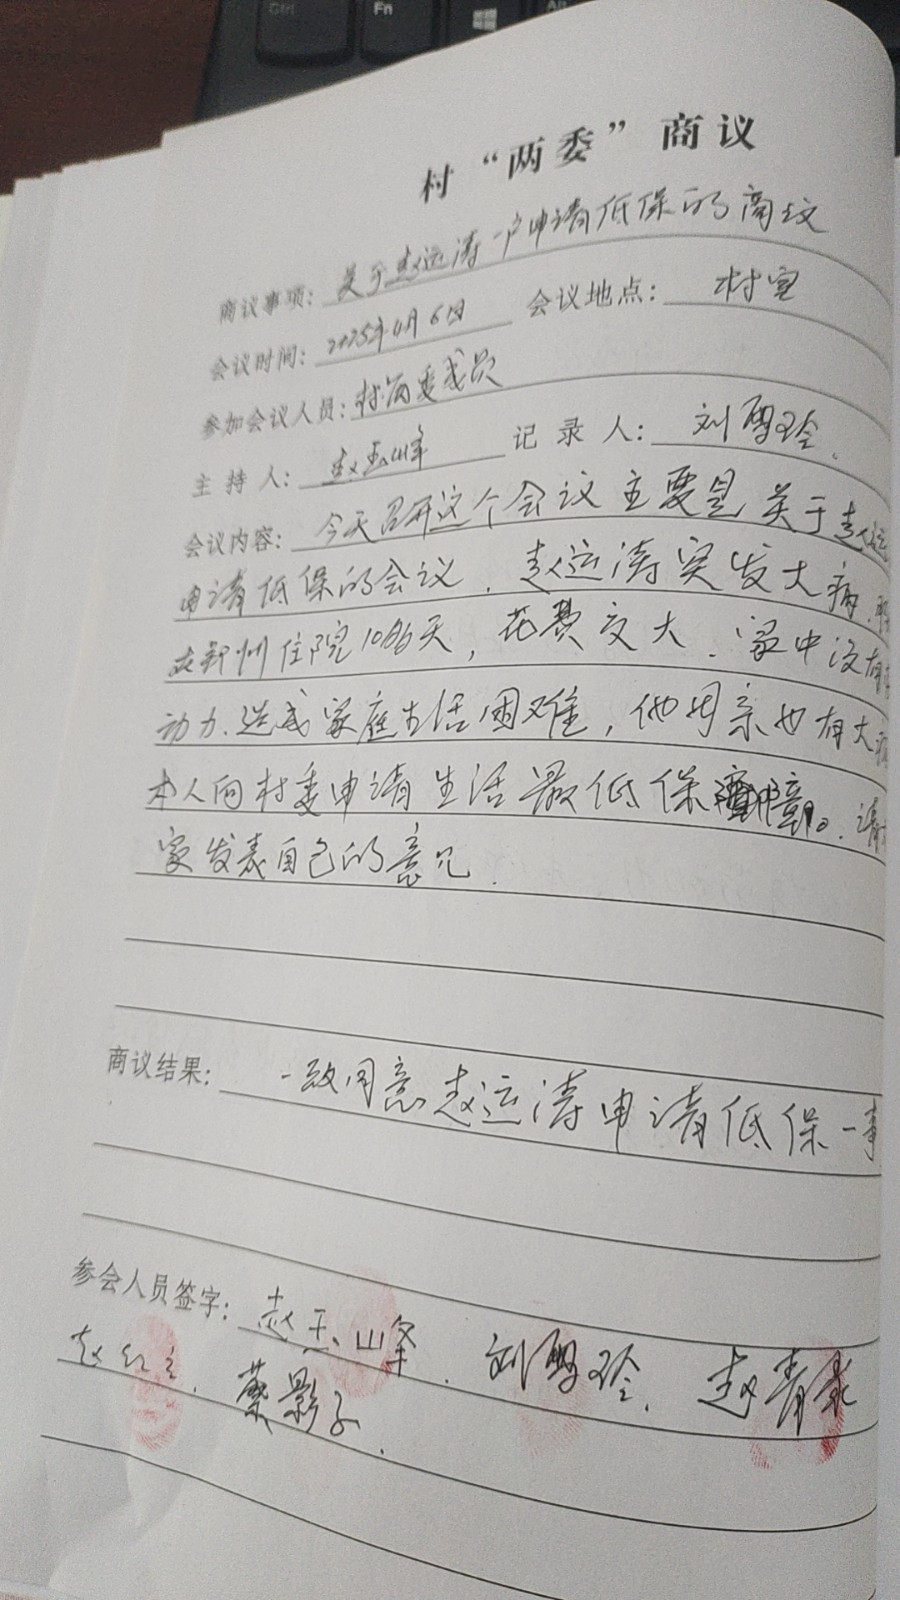 Ctrl Fn Alt
村“两委”商议
商议事项：关于赵运涛一户申请低保的商议
会议时间：2025年4月6日 会议地点：村室
参加会议人员：村两委成员
主持人：赵玉峰 记录人：刘雪玲
会议内容：今天召开这个会议主要是关于赵运
申请低保的会议，赵运涛突发大病，
在郑州住院10多天，花费交大．家中没有
动力．造成家庭生活困难，他母亲也有大
本人向村委申请生活最低保障。请
家发表自己的意见．
商议结果：一致同意赵运涛申请低保一事
参会人员签字：赵玉峰．刘雪玲．赵青
赵红立．蔡影子．